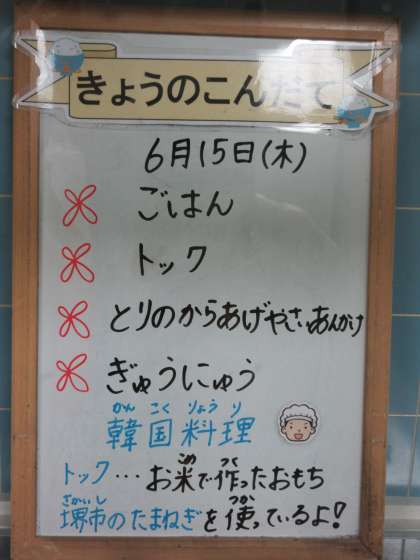 きょうのこんだて
6月15日(木)
ごはん
トック
とりのからあげやさいあんかけ
ぎゅうにゅう
かん こく りょう り
韓国料理
こめ つく
トック…お米で作ったおもち
さかいし つか
堺市のたまねぎを使っているよ!